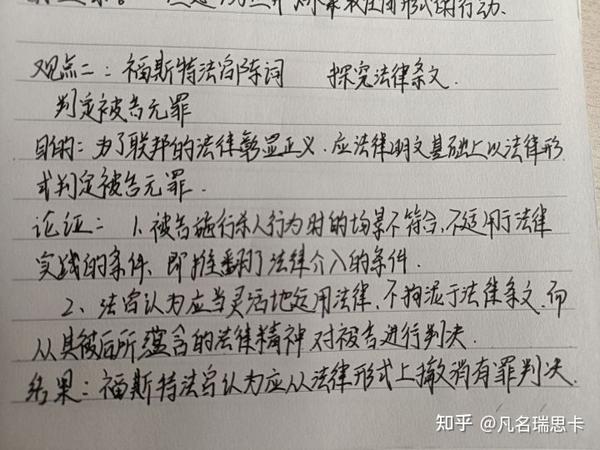 观点二：福斯特法官陈词 探究法律条文.
判定被告无罪
目的：为了联邦的法律彰显正义.应法律明文基础上以法律形
式判定被告无罪.
论证：1.被告施行杀人行为时的场景不符合,不适用于法律
实践的条件,即推翻了法律介入的条件.
2、法官认为应当灵活地运用法律,不拘泥于法律条文,而
从其被后所蕴含的法律精神对被告进行判决.
结果：福斯特法官认为应从法律形式上撤消有罪判决.
知乎 @凡名瑞思卡